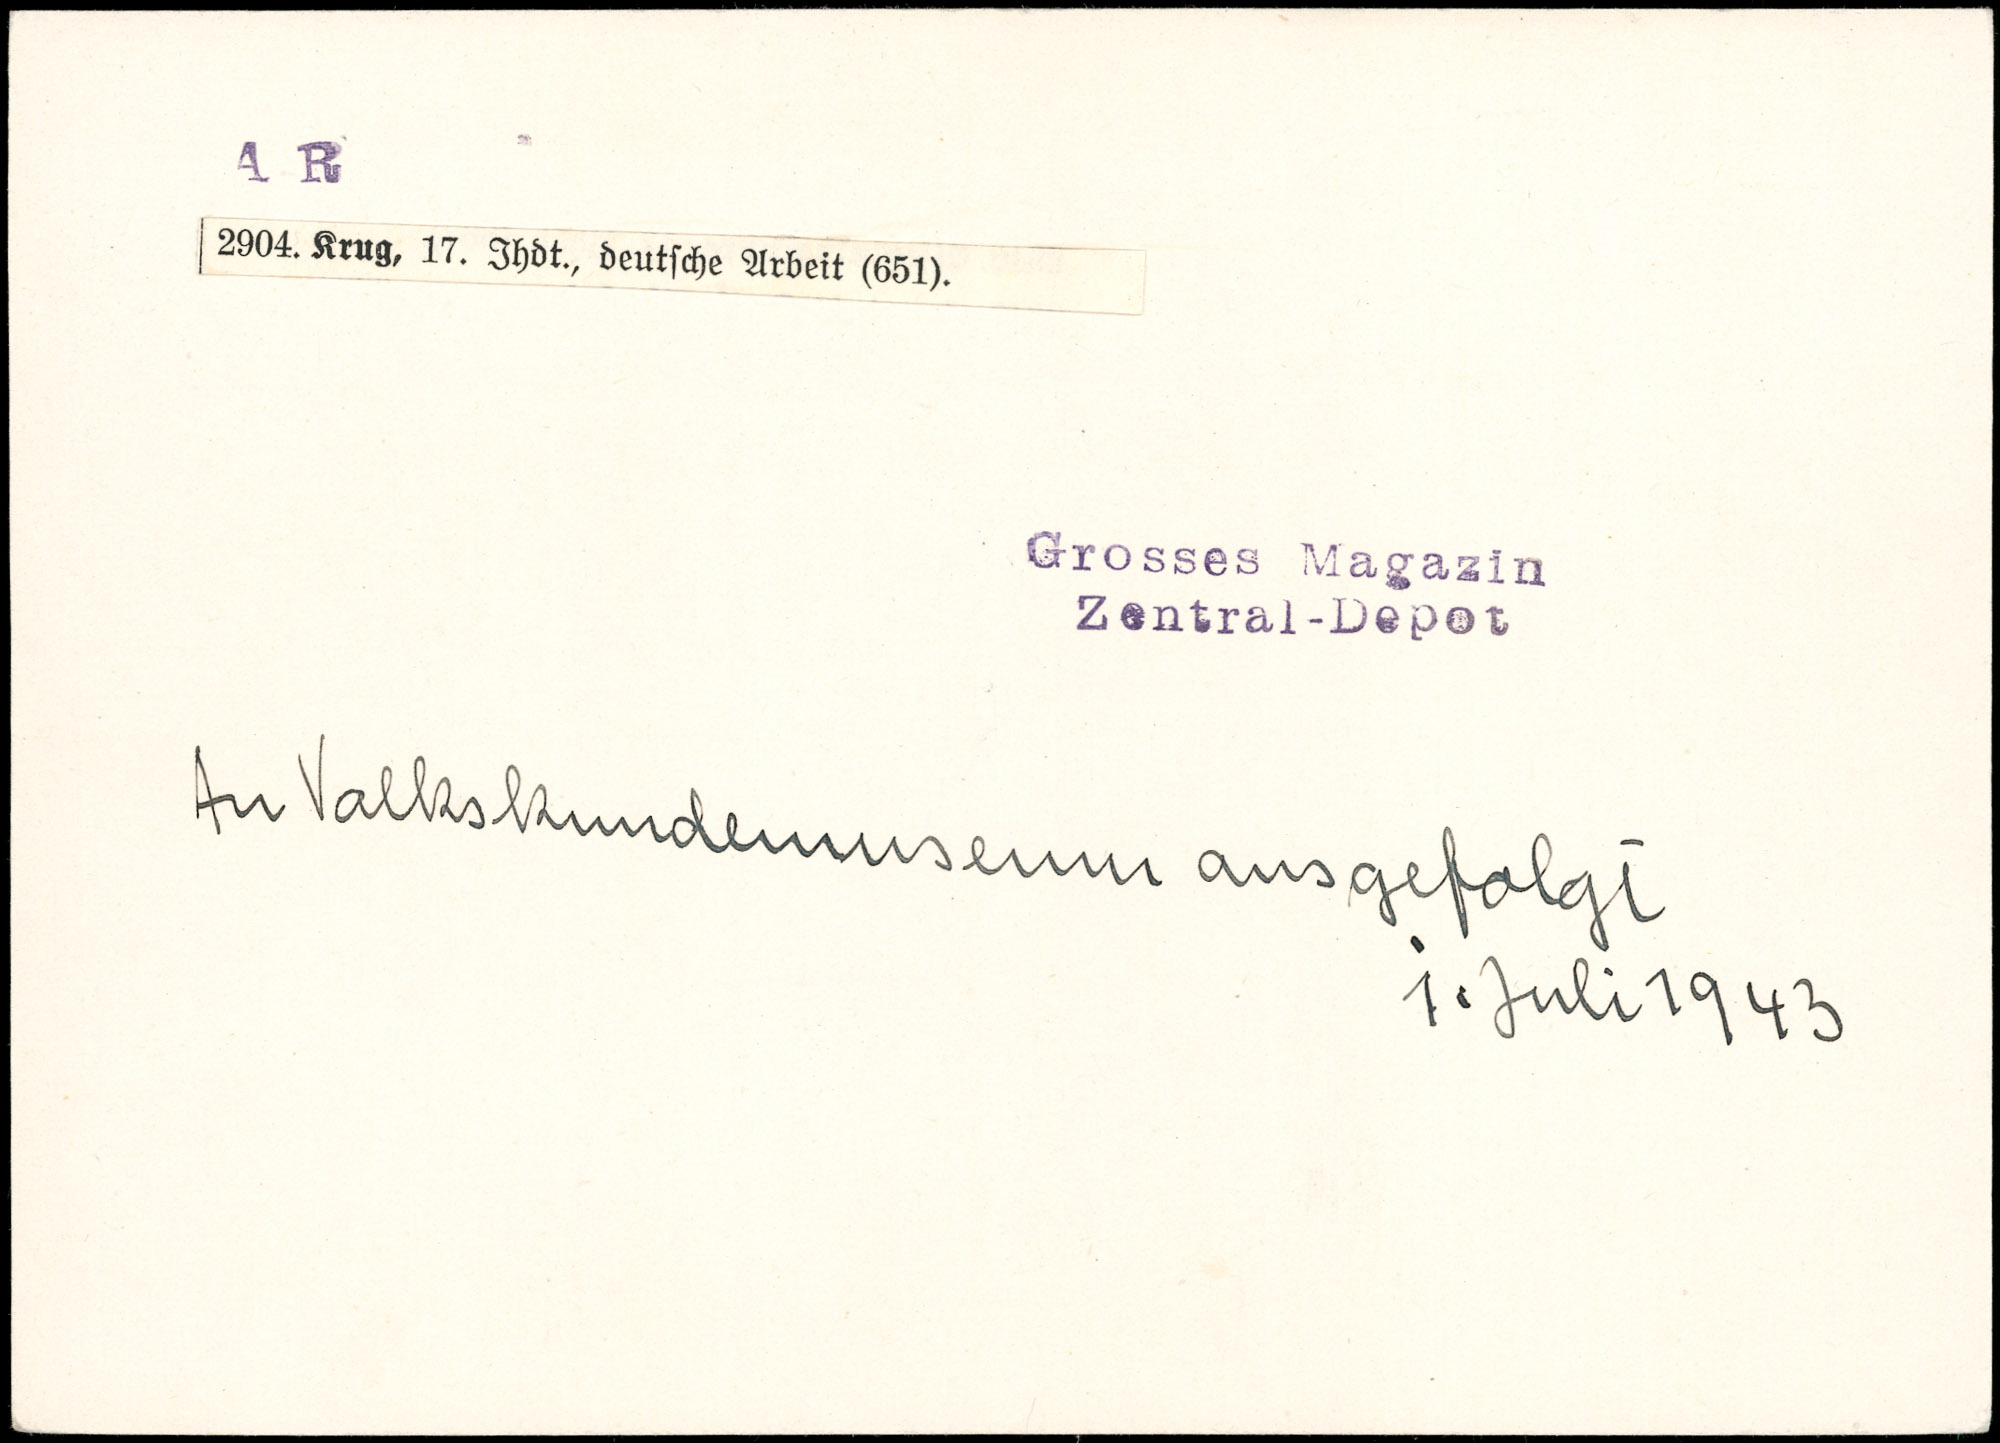 A R
2904. Krug, 17. Jhdt., deutsche Arbeit (651).
Grosses Magazin
Zentral-Depot
An Volkskundemuseum ausgefolgt
1. Juli 1943